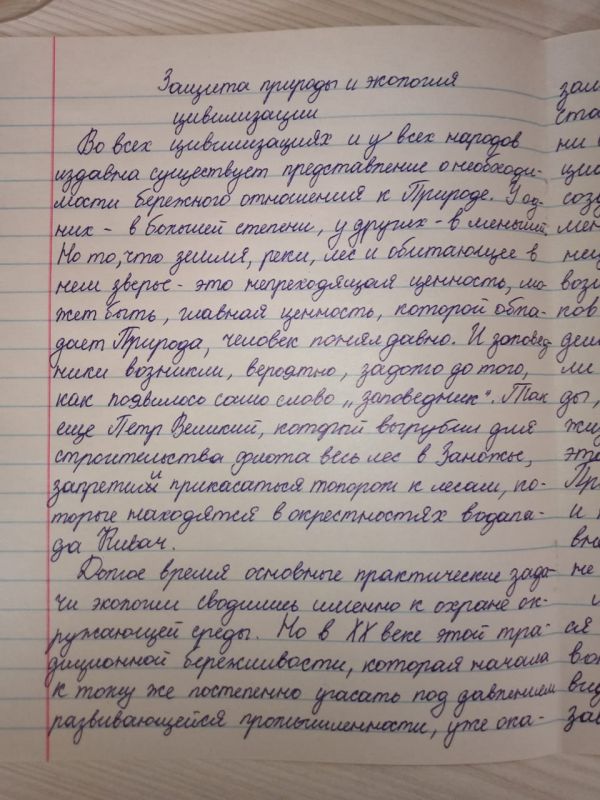 Защита природы и экология
цивилизации
Во всех цивилизациях и у всех народов
издавна существует представление о необходи-
мости бережного отношения к Природе. У од-
них - в большей степени, у других - в меньшей.
Но то, что земля, реки, лес и обитающее в
нем зверье - это непреходящая ценность, мо-
жет быть, главная ценность, которой обла-
дает Природа, человек понял давно. И заповед-
ники возникли, вероятно, задолго до того,
как появилось само слово „заповедник". Так
еще Петр Великий, который вырубил для
строительства флота весь лес в Заонжье,
запретил прикасаться топором к лесам, ко-
торые находятся в окрестностях водопа-
да Кивач.
Долгое время основные практические зада-
чи экологии сводились именно к охране ок-
ружающей среды. Но в XX веке этой тра-
диционной бережливости, которая начала
к тому же постепенно угасать под давлением
развивающейся промышленности, уже ока-
зам
ста
ни
ции
созу
мен
неи
вози
пов
деи
ли
ды,
жи
это
При
и
вне
не
ся
вот
вид
зав